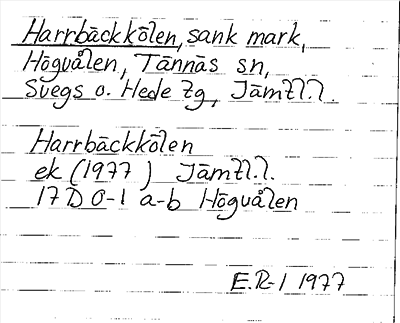 Harrbäckkölen, sank mark,
Högvålen, Tännäs sn,
Svegs o. Hede tg, Jämtl.l.
Harrbäckkölen
ek (1977) Jämtl.l.
17D 0-1 a-b Högvålen
E.R-l 1977